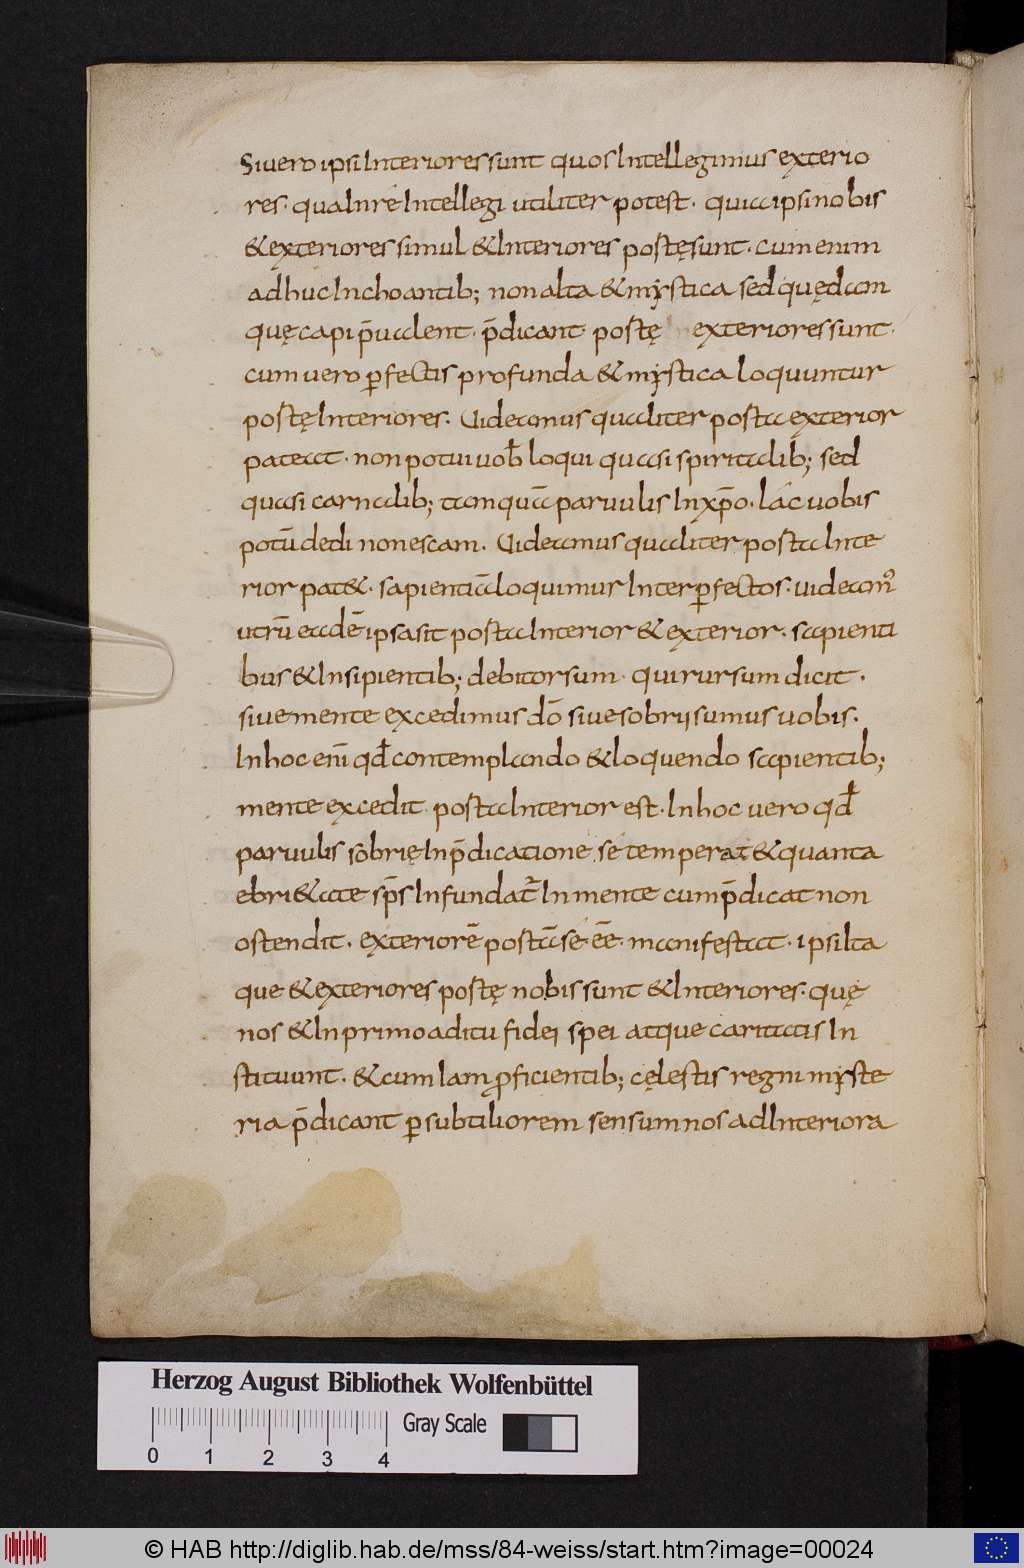 Siuero ipsi Interiores sunt quos Intellegimus exterio
res· qua In re Intellegi utiliter potest· quia ipsi nobis
& exteriores simul & Interiores postę sunt· cum enim
adhuc Inchoantib; non alta & mystica sed quędam
quę capi p̄ualent· p̄dicant postę exteriores sunt·
cum uero ꝑfectis profunda & mystica loquuntur
postę Interiores. Uideamus qualiter posta exterior
pateat· non potui uoƀ loqui quasi spiritalib; sed
quasi carnalib; tamquā paruulis In xp̄o· lac uobis
potū dedi non escam. Uideamus qualiter posta Inte
rior pat&· sapientiā loquimur Inter ꝑfectos· uideam᾽
utrū eadē ipsa sit posta Interior & exterior· sapienti
bus & Insipientib; debitor sum· qui rursum dicit·
siue mente excedimus dō siue sobrii sumus uobis·
In hoc enī qđ contemplando & loquendo sapientib;
mente excedit· posta Interior est· In hoc uero qđ
paruulis sobrię In p̄dicatione se temperat & quanta
ebri&ate sp̄s Infundat᷑ In mente cum p̄dicat non
ostendit· exteriorē postā se eē· manifestat· ipsi ita
que & exteriores postę nobis sunt & Interiores· quę
nos & In primo aditu fidei spei atque caritatis In
stituunt· & cum Iam ꝓficientib; cęlestis regni myste
ria p̄dicant ꝑ subtiliorem sensum nos ad Interiora
Herzog August Bibliothek Wolfenbüttel
Gray Scale
0 1 2 3 4
© HAB http://diglib.hab.de/mss/84-weiss/start.htm?image=00024